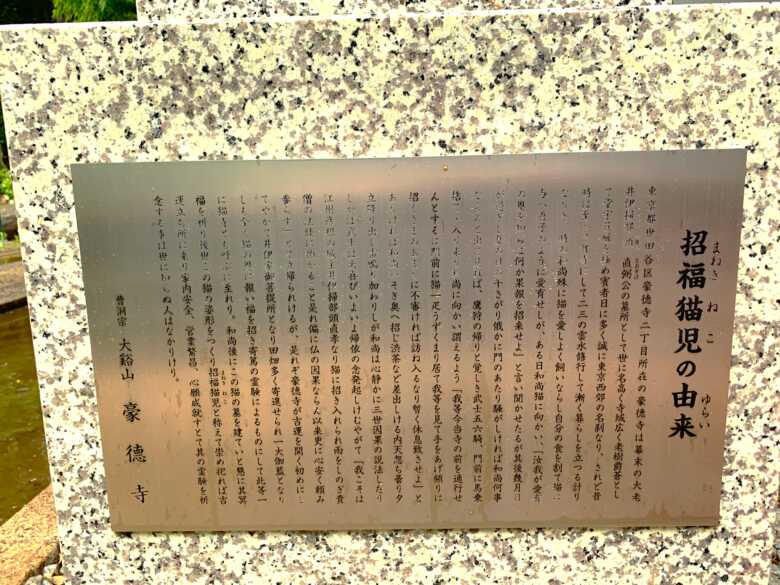 招福猫児の由来
まねき ねこ ゆらい
東京都世田谷区豪徳寺二丁目所在の豪徳寺は幕末の大老
井伊掃部頭直弼公の墓所として世に名高く寺域広く老樹蔚蒼とし
て堂宇 賽者日に多く誠に東京西郊の名刹なり、されど昔
時は 二三の雲水修行して漸く暮らしを立つる計り
なりき。時の和尚殊に猫を愛しよく飼いならし自分の食を割て猫に
与え 愛育せしが、ある日和尚猫に向かい、「汝我が愛育
の恩を知らば何か果報を招来せよ」と言い聞かせたるが其後幾月日
が過ぎし 下さがり俄かに門のあたり騒がしければ和尚何事
ならんと出て れば、鷹狩の帰りと覚しき武士五六騎、門前に馬乗
捨て 和尚に向かい謂えるよう「我等今当寺の前を通行せ
んとするに門前に猫一疋うずくまり居て我等を見て手をあげ頻りに
招き に不審ければ訪ね入るなり暫く休息致させよ」と
ありければ和尚いそぎ奥へ招じ渋茶など差出しける内天忽ち曇り夕
立降り出し 加わりしが和尚は心静かに三世因果の説法したり
しかば武士は大喜びいよいよ帰依の念発起しけむやがて「我こそは
江州彦根の城主井伊掃部頭直孝なり猫に招き入れられ雨をしのぎ貴
僧の法談に預ること是れ偏に仏の因果ならん以来更に心安く頼み
参らす」とて立帰られけるが、是れぞ豪徳寺が吉運を開く初めにし
てやがて井伊家御菩提所となり田畑多く寄進せられ一大伽藍となり
しも全く猫の恩に報い福を招き寄篤の霊験によるものにして此寺一
に猫寺とも呼ぶに至れり。和尚後にこの猫の墓を建ていと懇に其冥
福を祈り後世この猫の姿形をつくり招福猫児と称えて崇め祀れば吉
運立ち所に来り家内安全、営業繁昌、心願成就すとて其の霊験を祈
念する事は世に知らぬ人はなかりけり。
曹洞宗 大谿山 豪徳寺